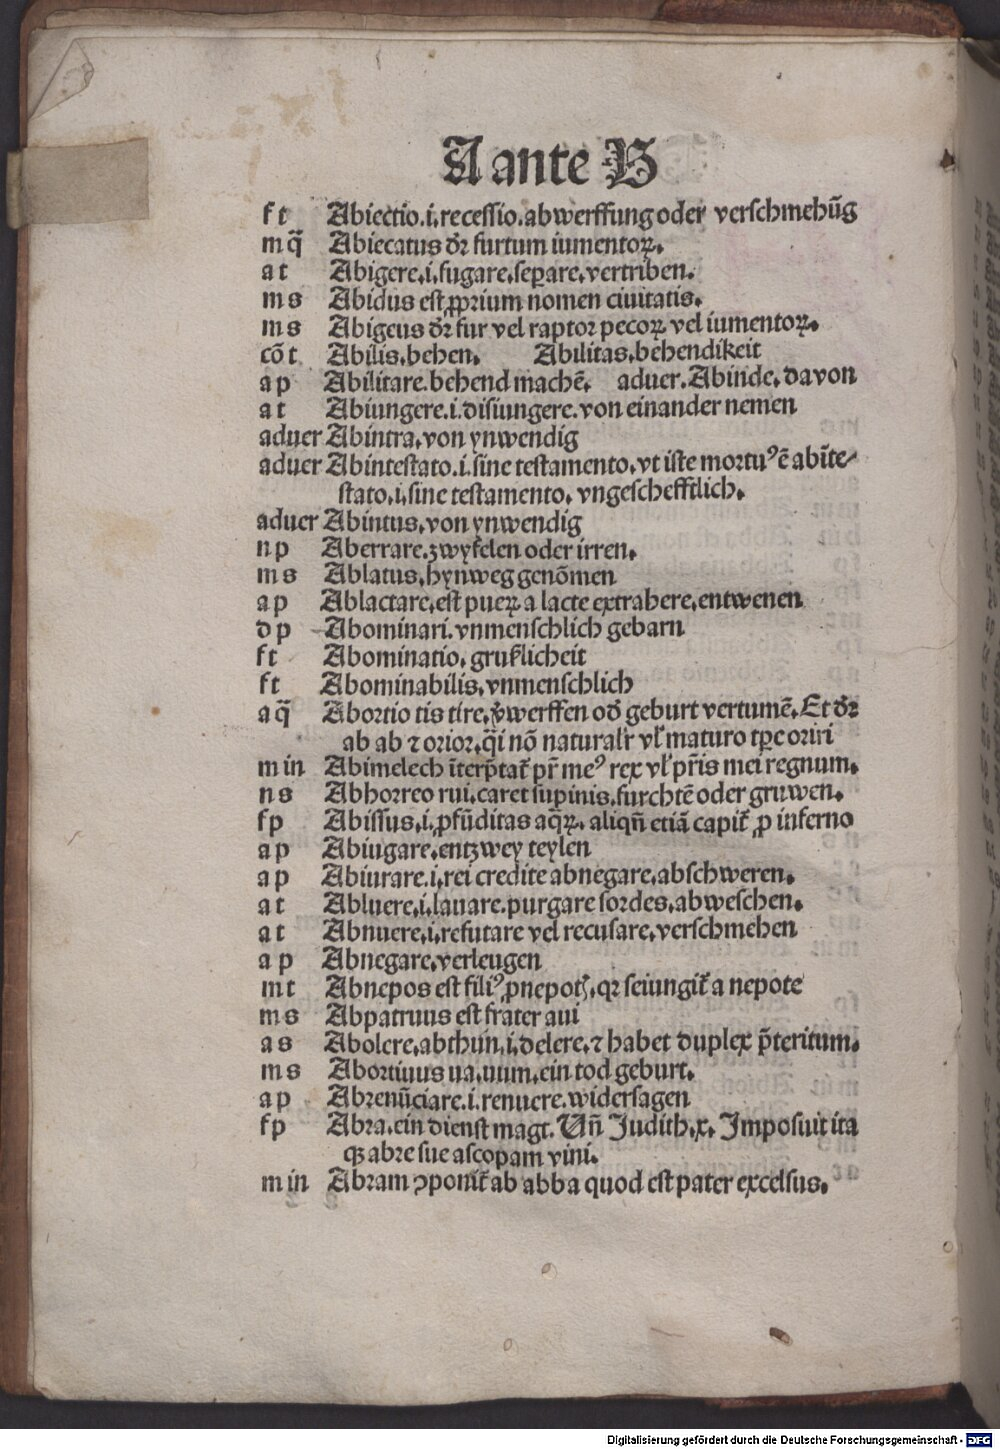 A ante B
f t Abiectio.i.recessio.abwerffung oder verschmehũg
m q̃ Abiecatus dr̃ furtum iumentoꝝ.
a t Abigere.i.fugare.seꝑare.vertriben.
m s Abidus est ꝓprium nomen ciuitatis.
m s Abigeus dr̃ fur vel raptor pecoꝝ vel iumentoꝝ.
cõ t Abilis.behen. Abilitas.behendikeit
a p Abilitare.behend machẽ. aduer.Abinde.davon
a t Abiungere.i.disiungere.von einander nemen
aduer Abintra.von ynwendig
aduer Abintestato.i.sine testamento.vt iste mortuꝰ ẽ abĩte-
stato.i.sine testamento.vngeschefftlich.
aduer Abintus.von ynwendig
n p Aberrare.zwyfelen oder irren.
m s Ablatus.hynweg genõmen
a p Ablactare.est pueꝝ a lacte extrahere.entwenen
d p Abominari.vnmenschlich gebarn
f t Abominatio.gruslicheit
f t Abominabilis.vnmenschlich
a q̃ Abortio tis tire.v̾werffen od̾ geburt vertumẽ.Et dr̃
ab ab ⁊ orior.q̃i nõ naturalr̃ vl̃ maturo tꝑe oriri
m in Abimelech ĩterp̃tat᷑ pr̃ meꝰ rex vl̃ pr̃is mei regnum.
n s Abhorreo rui.caret supinis.furchtẽ oder gruwen.
f p Abissus.i.ꝓfũditas aqꝝ. aliqñ etiã capit᷑ ꝓ inferno
a p Abiugare.entzwey teylen
a p Abiurare.i.rei credite abnegare.abschweren.
a t Abluere.i.lauare.purgare sordes.abweschen.
a t Abnuere.i.refutare vel recusare.verschmehen
a p Abnegare.verleugen
m t Abnepos est filiꝰ ꝓnepotꝭ.qꝛ seiungit᷑ a nepote
m s Abpatruus est frater aui
a s Abolere.abthun.i.delere.⁊ habet duplex p̃teritum.
m s Abortiuus ua.uum.ein tod geburt.
a p Abrenũciare.i.renuere.widersagen
f p Abra.ein dienst magt. Uñ Judith.x. Imposuit ita
qꝫ abre sue ascopam vini.
m in Abram ꝯponit᷑ ab abba quod est pater excelsus.
Digitalisierung gefördert durch die Deutsche Forschungsgemeinschaft - DFG